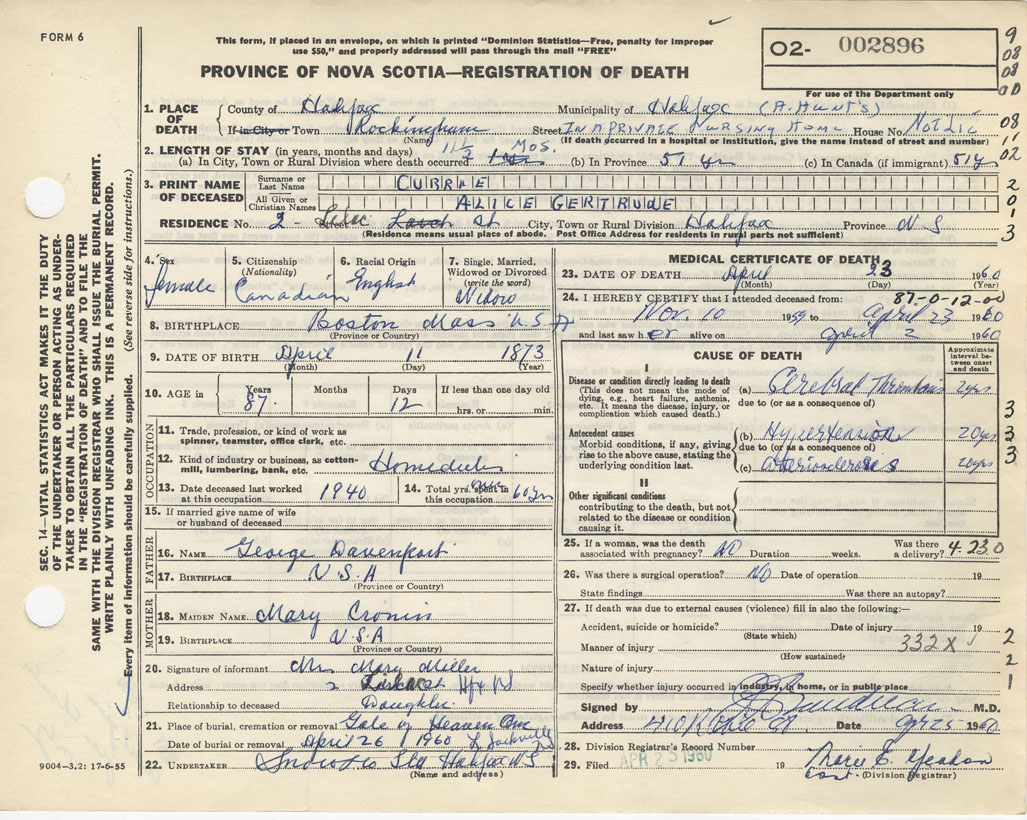 FORM 6
This form, if placed in an envelope, on which is printed "Dominion Statistics—Free, penalty for improper
use $50," and properly addressed will pass through the mail "FREE"
PROVINCE OF NOVA SCOTIA—REGISTRATION OF DEATH
02- 002896
For use of the Department only
9
08
08
00
08
11
02
2
0
3
1. PLACE OF DEATH
County of Halifax Municipality of Halifax (A. Hunt's)
If in City or Town Rockingham Street IN A PRIVATE NURSING HOME House No. Not Lic
(Name) (If death occurred in a hospital or institution, give the name instead of street and number)
2. LENGTH OF STAY (in years, months and days)
(a) In City, Town or Rural Division where death occurred MOS. (b) In Province 51 yrs (c) In Canada (if immigrant) 51 y
3. PRINT NAME OF DECEASED
Surname or Last Name CURRIE
All Given or Christian Names ALICE GERTRUDE
RESIDENCE No. 2 - Street Lilac St City, Town or Rural Division Halifax Province N S
(Residence means usual place of abode. Post Office Address for residents in rural parts not sufficient)
4. Sex female
5. Citizenship (Nationality) Canadian
6. Racial Origin English
7. Single, Married, Widowed or Divorced (write the word) Widow
8. BIRTHPLACE Boston Mass U.S.A
(Province or Country)
9. DATE OF BIRTH April 11 1873
(Month) (Day) (Year)
10. AGE in Years 87 Months Days 12 If less than one day old hrs. or min.
OCCUPATION
11. Trade, profession, or kind of work as spinner, teamster, office clerk, etc.
12. Kind of industry or business, as cotton-mill, lumbering, bank, etc. Homeduties
13. Date deceased last worked at this occupation 1940
14. Total yrs. spent in this occupation 60 yrs
15. If married give name of wife or husband of deceased
FATHER
16. NAME George Davenport
17. BIRTHPLACE U.S.A
(Province or Country)
MOTHER
18. MAIDEN NAME Mary Cronin
19. BIRTHPLACE U.S.A
(Province or Country)
20. Signature of informant Mrs Mary Miller
Address 2 Lilac St Hfx NS
Relationship to deceased Daughter
21. Place of burial, cremation or removal Gate of Heaven Cem
Date of burial or removal April 26 / 1960 L Sackville
22. UNDERTAKER Halifax N S
(Name and address)
MEDICAL CERTIFICATE OF DEATH
23. DATE OF DEATH April 23 1960
(Month) (Day) (Year)
24. I HEREBY CERTIFY that I attended deceased from: 87-0-12-00
Nov. 10 1959 to April 23 1960
and last saw h er alive on 1960
CAUSE OF DEATH
Approximate interval between onset and death
I
Disease or condition directly leading to death
(This does not mean the mode of dying, e.g., heart failure, asthenia, etc. It means the disease, injury, or complication which caused death.)
(a) Cerebral Thrombosis 2 yrs
due to (or as a consequence of)
Antecedent causes
Morbid conditions, if any, giving rise to the above cause, stating the underlying condition last.
(b) Hypertension 20 yrs
due to (or as a consequence of)
(c) Arteriosclerosis 20 yrs
II
Other significant conditions
contributing to the death, but not related to the disease or condition causing it.
3
3
3
25. If a woman, was the death associated with pregnancy? NO Duration weeks. Was there a delivery? 4.23 0
26. Was there a surgical operation? No Date of operation 19
State findings Was there an autopsy?
27. If death was due to external causes (violence) fill in also the following:—
Accident, suicide or homicide? Date of injury 19
(State which)
Manner of injury 332X
(How sustained)
Nature of injury
Specify whether injury occurred in industry, in home, or in public place
2
2
1
Signed by M.D.
Address Date 25 1960
28. Division Registrar's Record Number
29. Filed APR 25 1960 19 Marie E. Yeadon
(Division Registrar)
SEC. 14—VITAL STATISTICS ACT MAKES IT THE DUTY
OF THE UNDERTAKER OR PERSON ACTING AS UNDER-
TAKER TO OBTAIN ALL THE PARTICULARS REQUIRED
IN THE "REGISTRATION OF DEATH" AND TO FILE THE
SAME WITH THE DIVISION REGISTRAR WHO SHALL ISSUE THE BURIAL PERMIT.
WRITE PLAINLY WITH UNFADING INK. THIS IS A PERMANENT RECORD.
Every item of information should be carefully supplied. (See reverse side for instructions.)
9004-3.2: 17-6-55